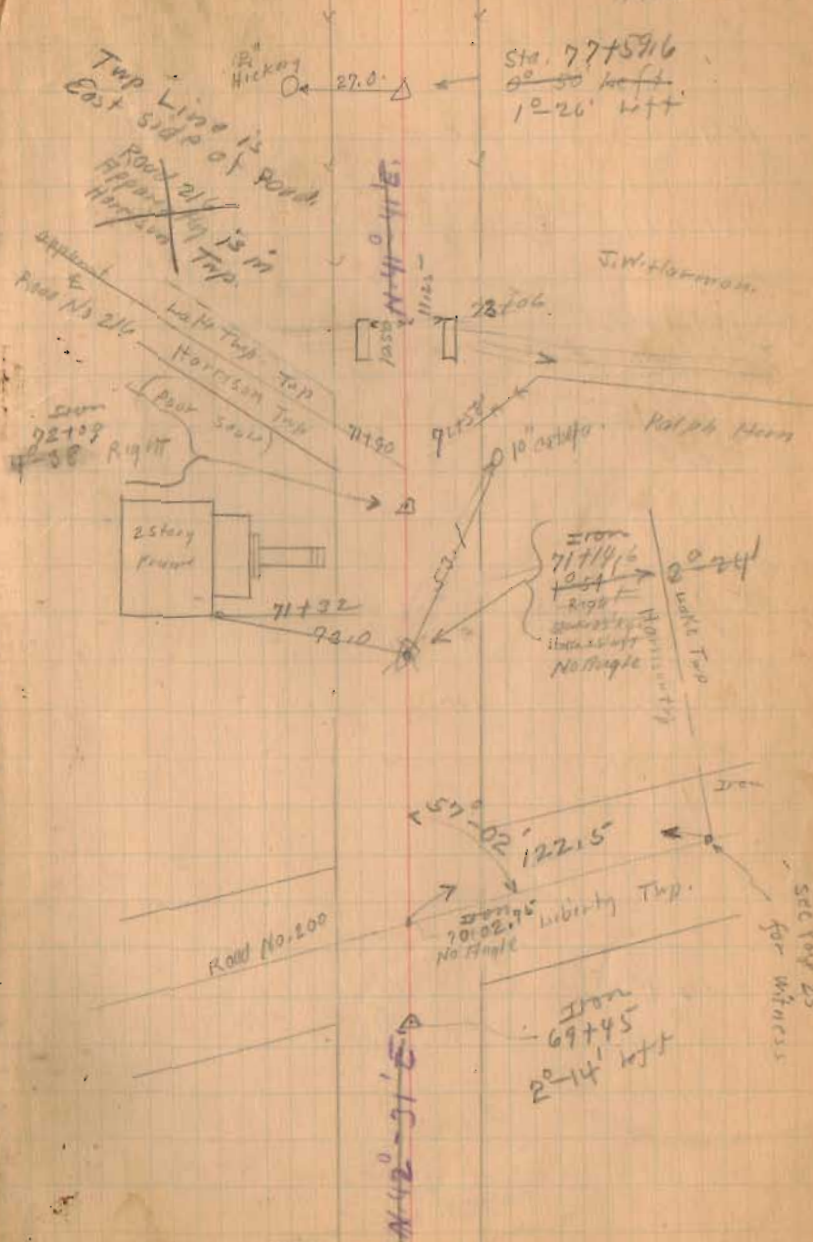 12"
Hickory
27.0
Sta. 77+59.6
0°-50' Left
1°-26' Left
Twp Line is
East side of Road.
Road 216
Apparently is in
Harrison Twp.
N 41°-41' E.
J.W. Harmon.
apparent
Road No 216
Lake Twp. Twp
Harrison Twp
(poor
10.50
11.25
73+06
71+58
71+90
10"
Ralph Horn
Iron
72+09
4°-38' Right
2 Story
Frame
53.1
71+32
73.0
Iron
71+14.6
1°54'
Right
No Angle
2°-24'
Lake Twp
Harrison Twp
57°-02'
122.5
Iron
Road No. 200
Iron
70+02.75
No Angle
Liberty Twp.
see page 25
for witness
Iron
69+45
2°-14' Left
N 42°-31' E